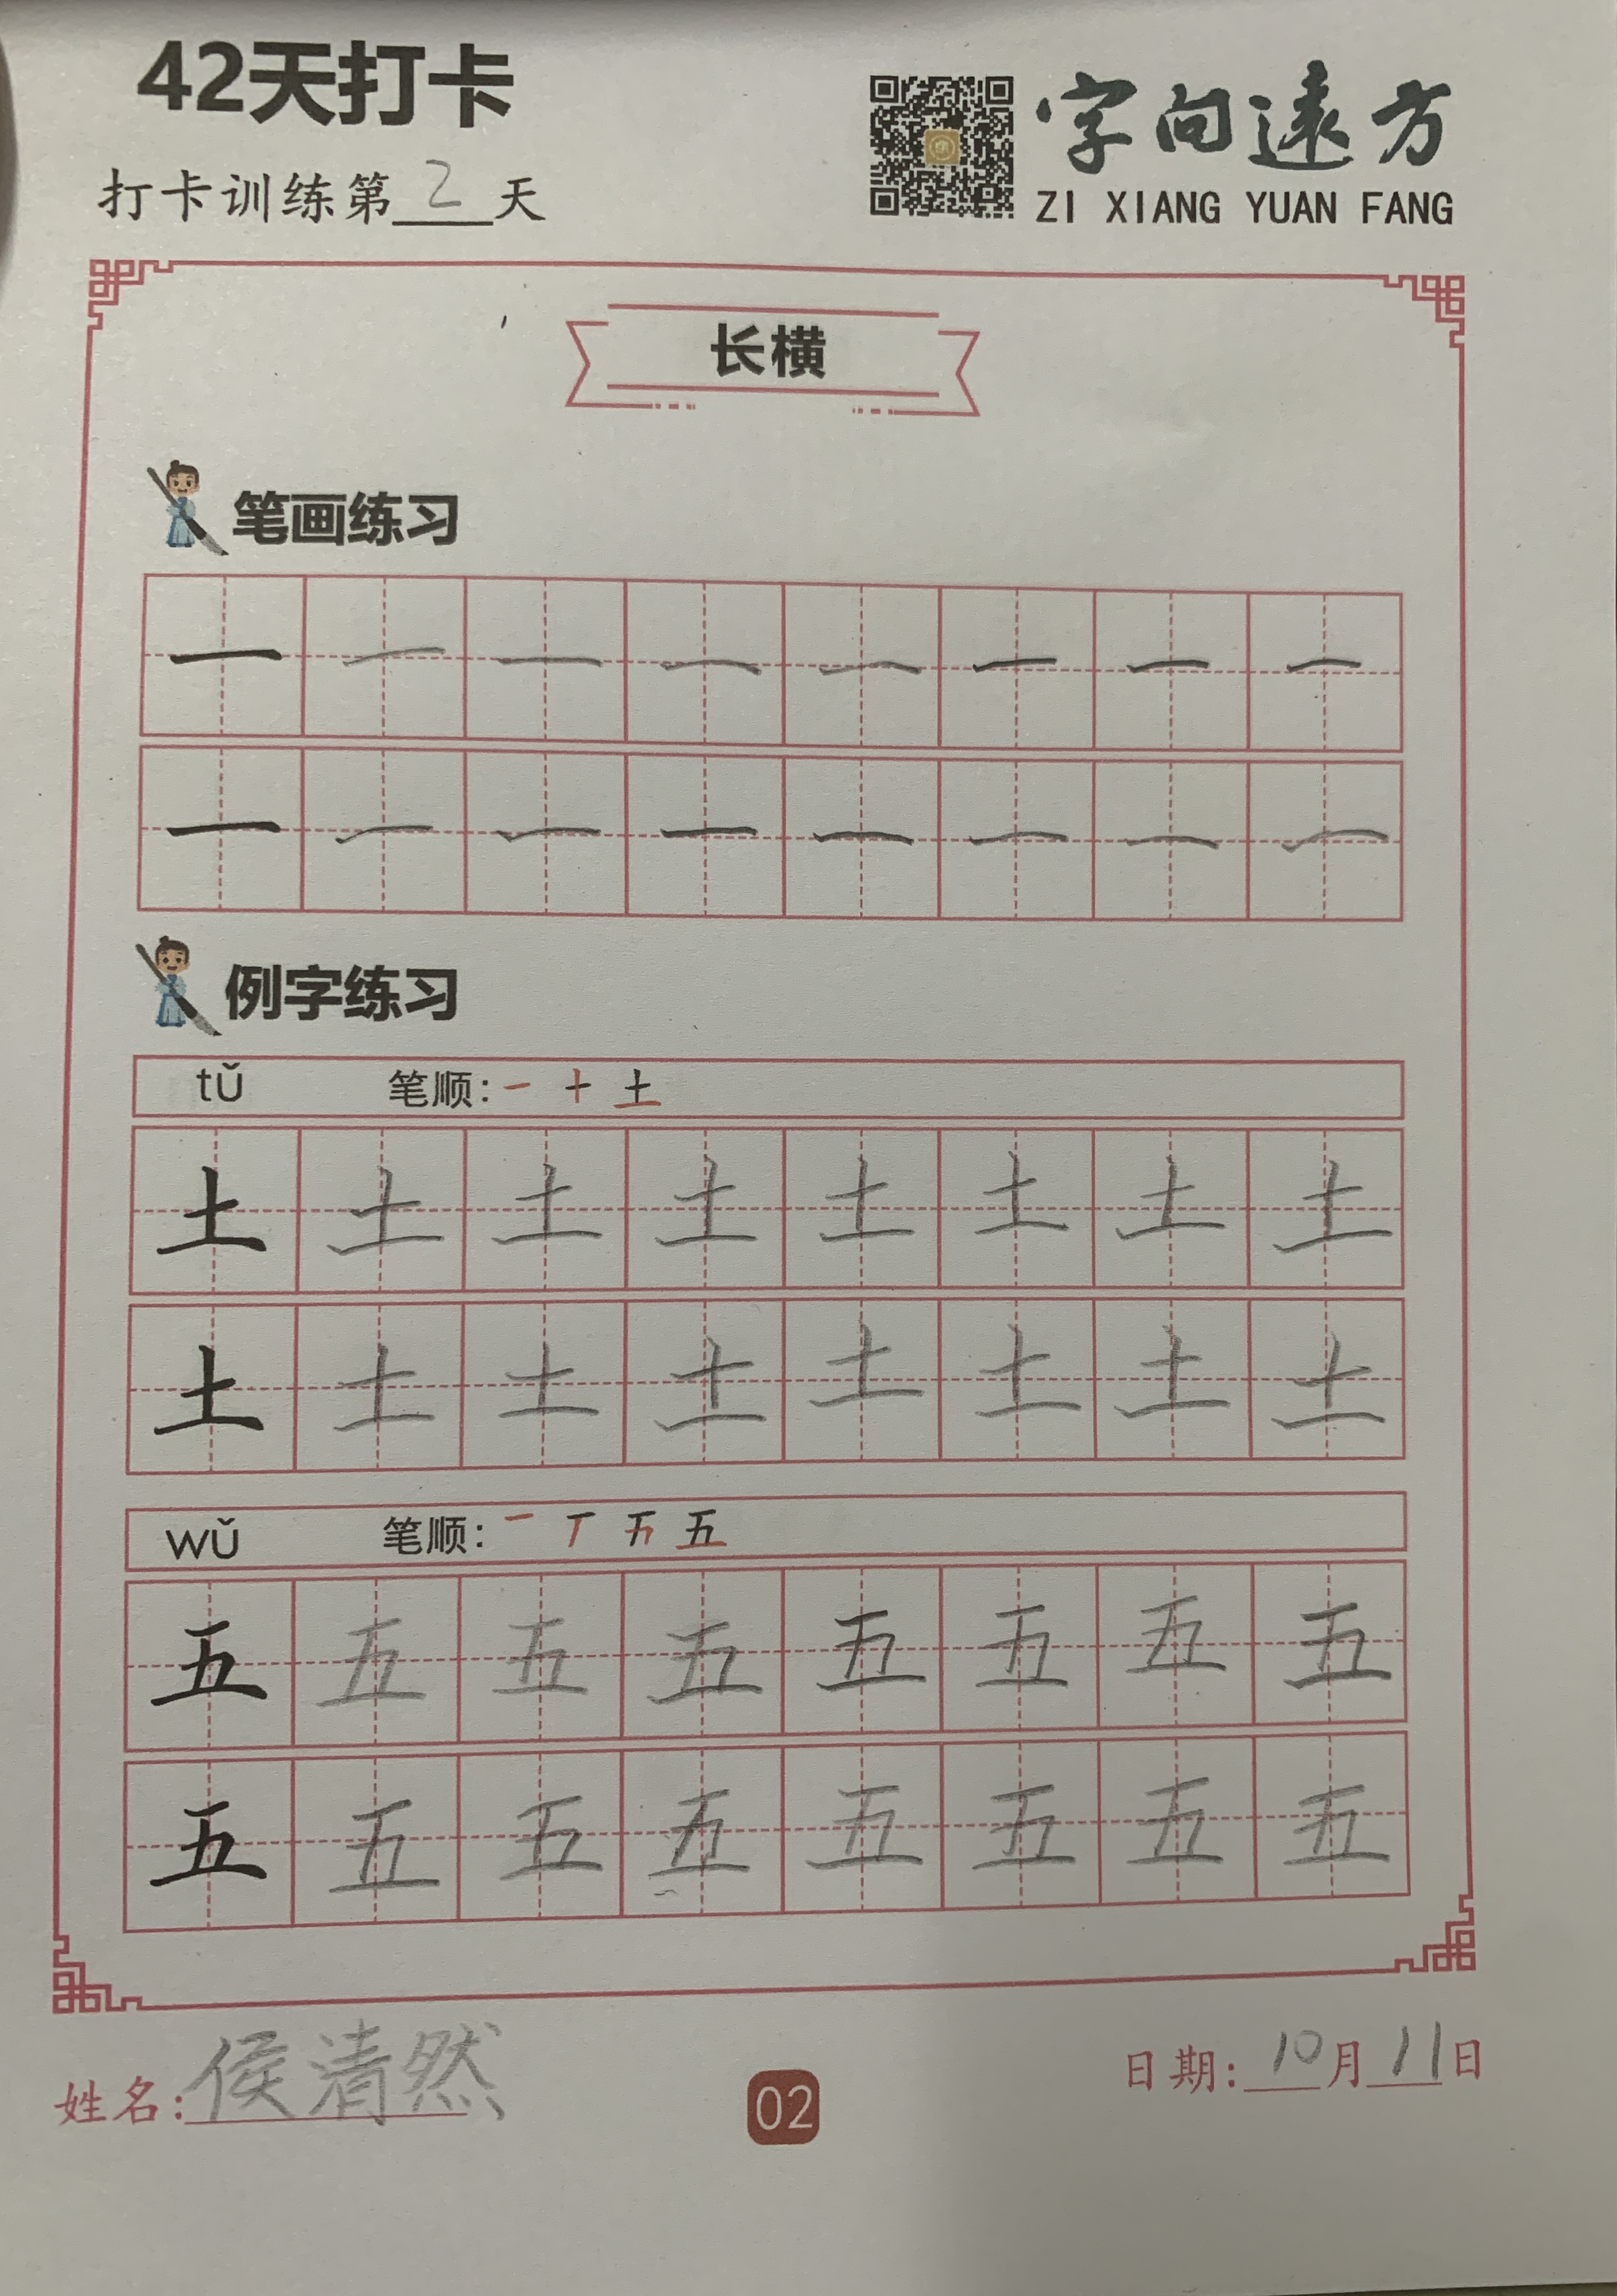 42天打卡
字向遠方
打卡训练第2天
ZI XIANG YUAN FANG
长横
笔画练习
一 一 一 一 一 一 一 一
一 一 一 一 一 一 一 一
例字练习
tǔ 笔顺: 一 十 土
土 土 土 土 土 土 土 土
土 土 土 土 土 土 土 土
wǔ 笔顺: 一 丅 五 五
五 五 五 五 五 五 五 五
五 五 五 五 五 五 五 五
姓名: 侯清然
02
日期: 10月11日